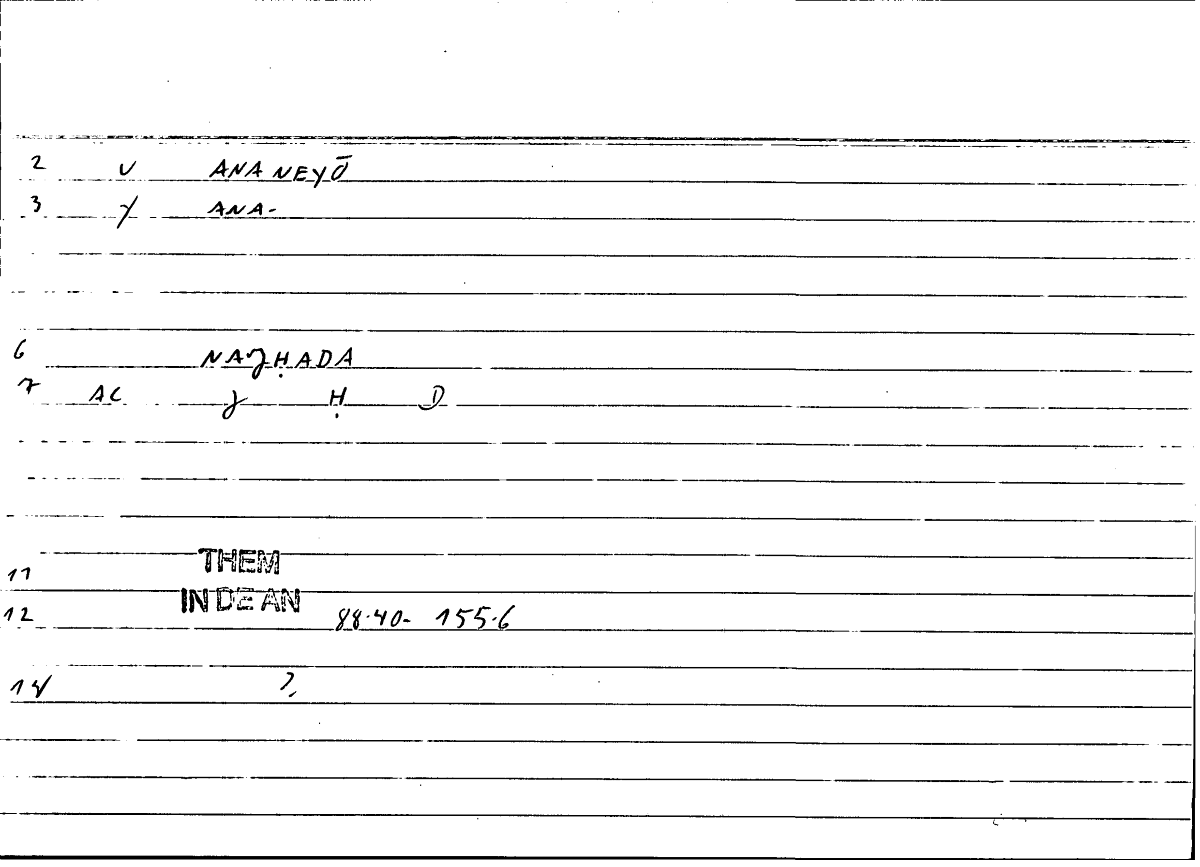 2 V ANANEYŌ
3 Y ANA-
6 NAɣḤADA
7 AC ɣ Ḥ D
11 THEM
12 IN DE AN 88.40- 155.6
14 ?